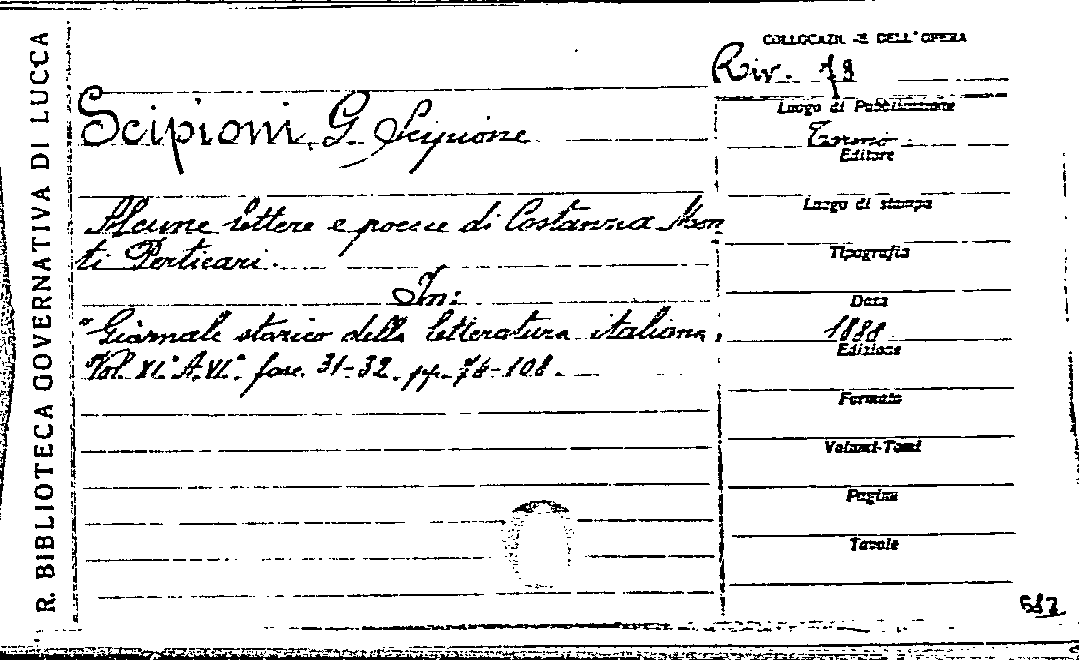 R. BIBLIOTECA GOVERNATIVA DI LUCCA
COLLOCAZIONE DELL'OPERA
Riv. 78
Scipioni, G. Scipione
Alcune lettere e poesie di Costanza Mon
ti Perticari.
In:
"Giornale storico della letteratura italiana,
Vol. XI. A. VI. fasc. 31-32. pp. 74-108.
Luogo di Pubblicazione
Torino
Editore
Luogo di stampa
Tipografia
Data
1888
Edizione
Formato
Volumi-Tomi
Pagine
Tavole